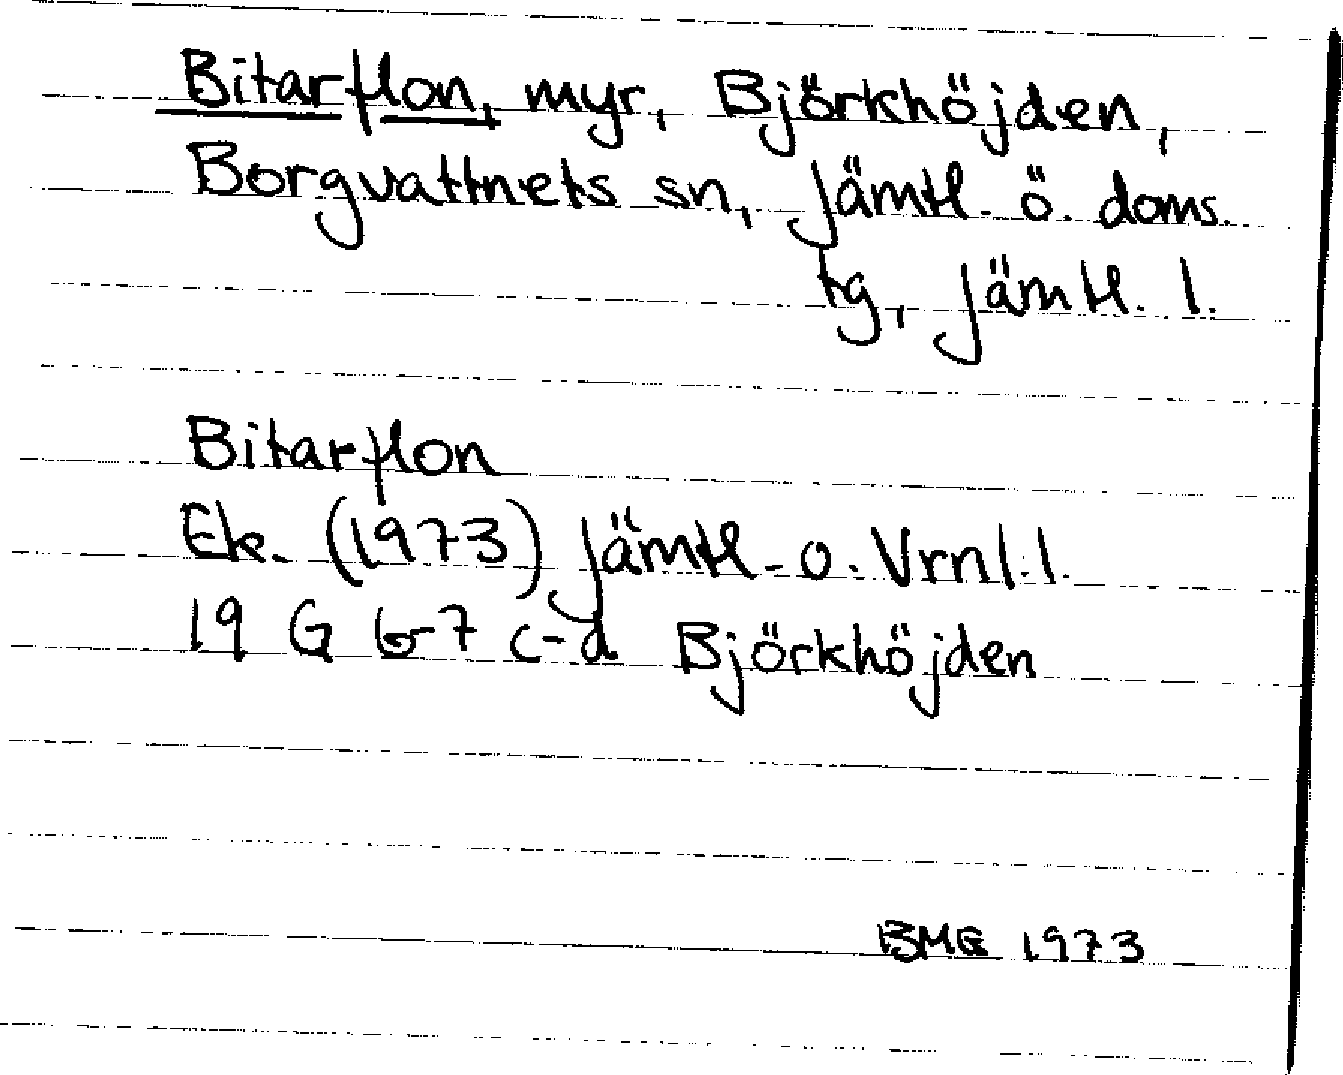 Bitarflon, myr, Björkhöjden,
Borgvattnets sn, Jämtl. ö. doms.
tg, Jämtl. l.
Bitarflon
Ek. (1973) Jämtl. o. Vrnl. l.
19 G 6-7 c-d Björkhöjden
BMG 1973